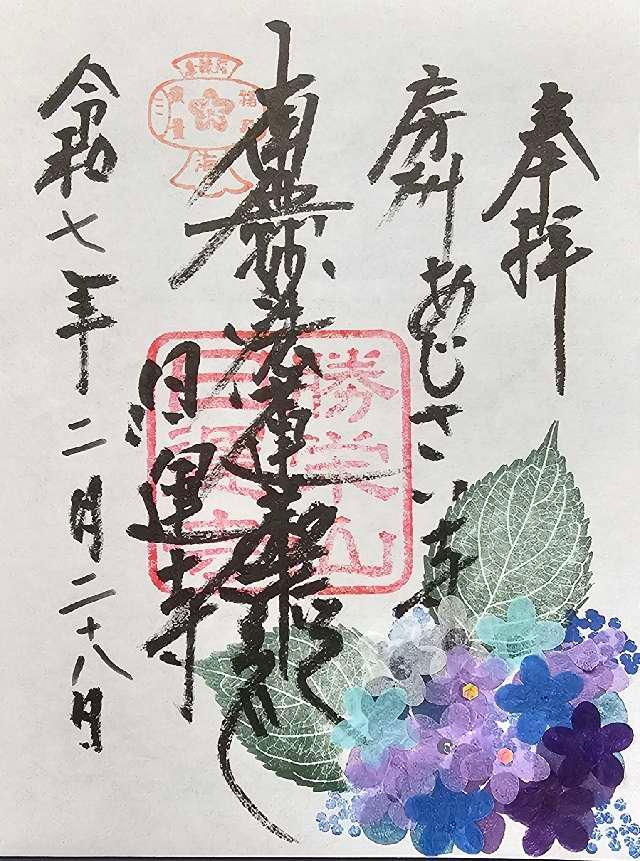 奉拝
房州あじさい寺
南無妙法蓮華経
日運寺
令和七年二月二十八日
勝栄山
日運寺